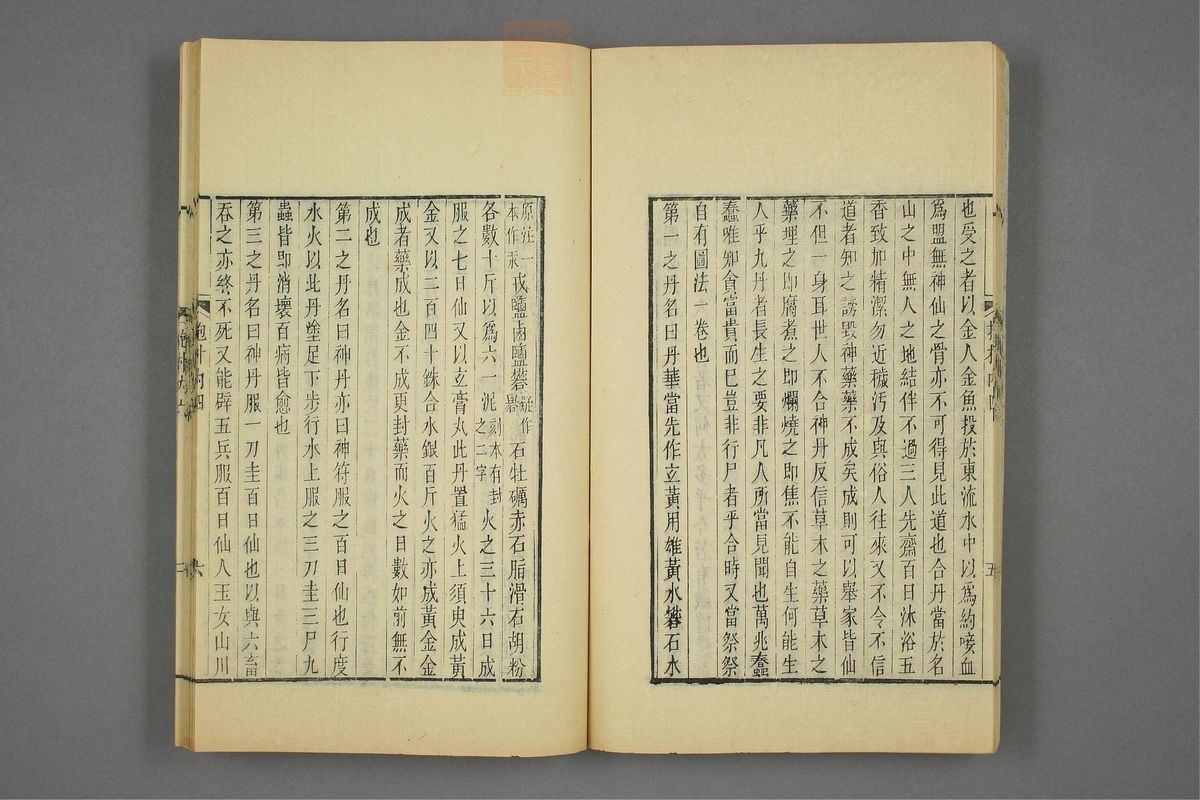 也受之者以金人金魚投於東流水中以爲約唼血
爲盟無神仙之骨亦不可得見此道也合丹當於名
山之中無人之地結伴不過三人先齋百日沐浴五
香致加精潔勿近穢汚及與俗人往來又不令不信
道者知之謗毀神藥藥不成矣成則可以舉家皆仙
不但一身耳世人不合神丹反信草木之藥草木之
藥埋之卽腐煮之卽爛燒之卽焦不能自生何能生
人乎九丹者長生之要非凡人所當見聞也萬兆蠢
蠢唯知貪富貴而已豈非行尸者乎合時又當祭祭
自有圖法一卷也
第一之丹名曰丹華當先作玄黃用雄黃水礬石水
五
原注一本作汞
戎鹽鹵鹽礜疑作礬石牡礪赤石脂滑石胡粉
各數十斤以爲六一泥刻本有封之二字火之三十六日成
服之七日仙又以玄膏丸此丹置猛火上須臾成黃
金又以二百四十銖合水銀百斤火之亦成黃金金
成者藥成也金不成更封藥而火之日數如前無不
成也
第二之丹名曰神丹亦曰神符服之百日仙也行度
水火以此丹塗足下步行水上服之三刀圭三尸九
蟲皆卽消壞百病皆愈也
第三之丹名曰神丹服一刀圭百日仙也以與六畜
吞之亦終不死又能辟五兵服百日仙人玉女山川
抱朴內四
六